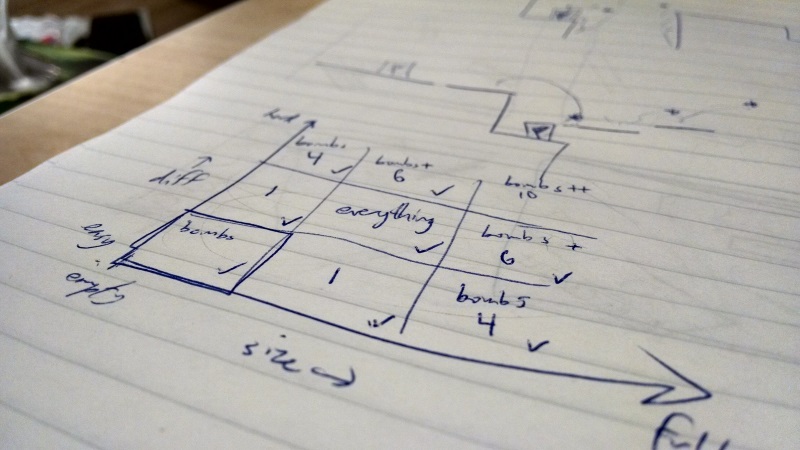 hard
bombs
4
bombs+
6
bombs++
10
diff
1
everything
bombs +
6
easy
bombs
1
bombs
4
empty
size